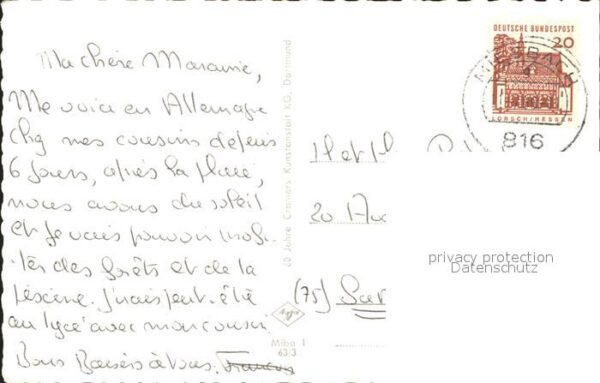 Ma chère Marraine,
Me voici en Allemagne
chez mes cousins depuis
6 jours, après la pluie,
nous avons du soleil
et je vais pouvoir profi-
ter des forêts et de la
piscine. j'irais peut-être
au lycée avec mon cousin
Bons Baisers à vous.
60 Jahre Cramers Kunstanstalt KG, Dortmund
Miba 1
63/3
DEUTSCHE BUNDESPOST
20
LORSCH/HESSEN
816
20
(75)
privacy protection
Datenschutz